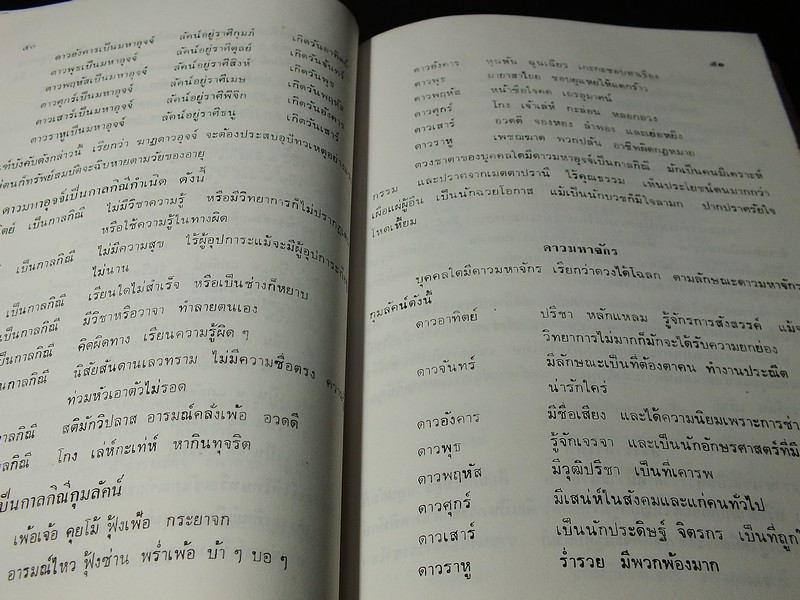 ๕๐
ดาวอังคารเป็นมหาอุจจ์ ลัคน์อยู่ราศีกุมภ์
ดาวพุธเป็นมหาอุจจ์ ลัคน์อยู่ราศีตุลย์ เกิดวันจันทร์
ดาวพฤหัสเป็นมหาอุจจ์ ลัคน์อยู่ราศีสิงห์ เกิดวันพุธ
ดาวศุกร์เป็นมหาอุจจ์ ลัคน์อยู่ราศีเมษ เกิดวันพฤหัส
ดาวเสาร์เป็นมหาอุจจ์ ลัคน์อยู่ราศีพิจิก เกิดวันอังคาร
ดาวราหูเป็นมหาอุจจ์ ลัคน์อยู่ราศีธนู เกิดวันเสาร์
บังคับดังกล่าวนี้ เรียกว่า ฆาฏดาวอุจจ์ จะต้องประสบอุปัทวเหตุ
ก็ทรัพย์สมบัติจะฉิบหายตามวัยของอายุ
ดาวมหาอุจจ์เป็นกาลกิณีกำเนิด ดังนี้
เป็นกาลกิณี ไม่มีวิชาความรู้ หรือมีวิทยาการก็ไม่ปรากฏ
หรือใช้ความรู้ในทางผิด
เป็นกาลกิณี ไม่มีความสุข ไร้ผู้อุปการะแม้จะมีผู้อุปการะก็
ไม่นาน
เป็นกาลกิณี เรียนใดไม่สำเร็จ หรือเป็นช่างก็หยาบ
เป็นกาลกิณี มีวิชาหรือวาจา ทำลายตนเอง
เป็นกาลกิณี คิดผิดทาง เรียนความรู้ผิด ๆ
เป็นกาลกิณี นิสัยสันดานเลวทราม ไม่มีความซื่อตรง
ท่วมหัวเอาตัวไม่รอด
กาลกิณี สติมักวิปลาส อารมณ์คลั่งเพ้อ อวดดี
กาลกิณี โกง เล่ห์กะเท่ห์ หากินทุจริต
เป็นกาลกิณีกุมลัคน์
เพ้อเจ้อ คุยโม้ ฟุ้งเฟ้อ กระยาจก
อารมณ์ไหว ฟุ้งซ่าน พร่ำเพ้อ บ้า ๆ บอ ๆ
๕๑
ดาวอังคาร หุนหัน ฉุนเฉียว เกะกะชอบหาเรื่อง
ดาวพุธ มายาสาไถย ชอบยุแหย่ให้แตกร้าว
ดาวพฤหัส หน้าซื่อใจคด
ดาวศุกร์ โกง เจ้าเล่ห์ กะล่อน หลอกลวง
ดาวเสาร์ อวดดี จองหอง ลำพอง และเย่อหยิ่ง
ดาวราหู เพชฌฆาต พวกปล้น อาชีพผิดกฎหมาย
ดวงชาตาของบุคคลใดมีดาวมหาอุจจ์เป็นกาลกิณี มักเป็นคนมีเคราะห์
กรรม และปราศจากเมตตาปรานี ไร้คุณธรรม เห็นประโยชน์ตนมากกว่า
เผื่อแผ่ผู้อื่น เป็นนักฉวยโอกาส แม้เป็นนักบวชก็มีใจลามก ปากปราศรัยใจ
โหดเหี้ยม
ดาวมหาจักร
บุคคลใดมีดาวมหาจักร เรียกว่าดวงได้โฉลก ตามลักษณะดาวมหาจักร
กุมลัคน์ดังนี้
ดาวอาทิตย์ ปรีชา หลักแหลม รู้จักรการสังสรรค์
วิทยาการไม่มากก็มักจะได้รับความยกย่อง
ดาวจันทร์ มีลักษณะเป็นที่ต้องตาคน ทำงานประณีต
น่ารักใคร่
ดาวอังคาร มีชื่อเสียง และได้ความนิยมเพราะการช่า
ดาวพุธ รู้จักเจรจา และเป็นนักอักษรศาสตร์ที่มี
ดาวพฤหัส มีวุฒิปรีชา เป็นที่เคารพ
ดาวศุกร์ มีเสน่ห์ในสังคมและแก่คนทั่วไป
ดาวเสาร์ เป็นนักประดิษฐ์ จิตรกร เป็นที่ถูก
ดาวราหู ร่ำรวย มีพวกพ้องมาก